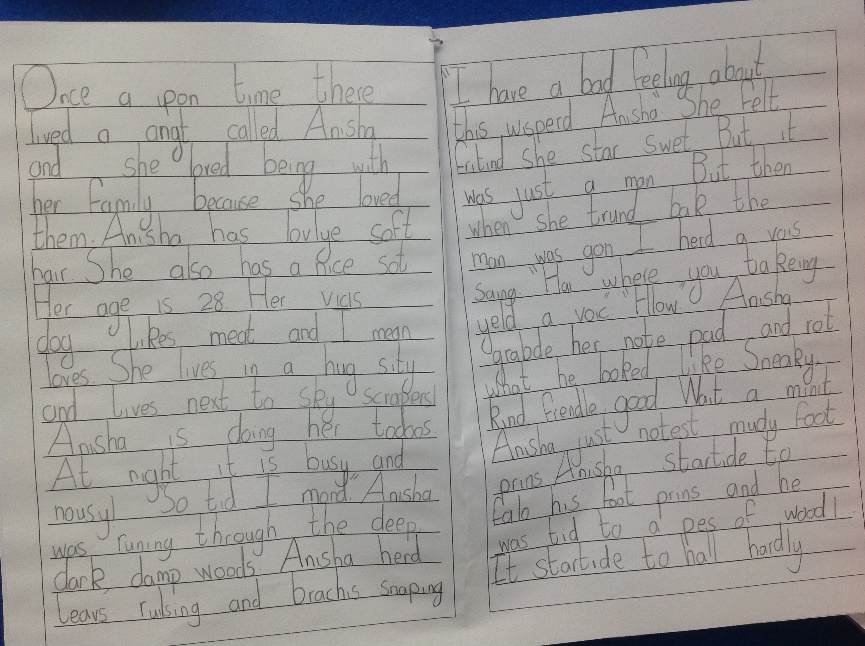 Once a ipon time there
lived a angt called Anisha
and she loved being with
her family because she loved
them. Anisha has lovlye soft
hair. She also has a Rice sot
Her age is 28. Her vicis
dog likes meat and I mean
loves. She lives in a hug sity
and lives next to sky scrapers!
Anisha is doing her todoos.
At night it is busy and
nousy! "So tid I mord." Anisha
was runing through the deep
dark, damp woods. Anisha herd
leavs rulsing and brachis snaping
"I have a bad feeling about
this wisperd. Anisha" She felt
fritind she star swet But it
was just a man But then
when she trund bak the
man was gon I herd a vois
saing. "Hai where you takeing
yeld a voic" "Hlow" Anisha
grabde her note pad and rot
what he looked like Sneaky,
kind frendle, good Wait a minit
Anisha just notest mudy foot
prins Anisha startide to
falo his foot prins and he
was tid to a pes of wood!
It startide to hall hardly